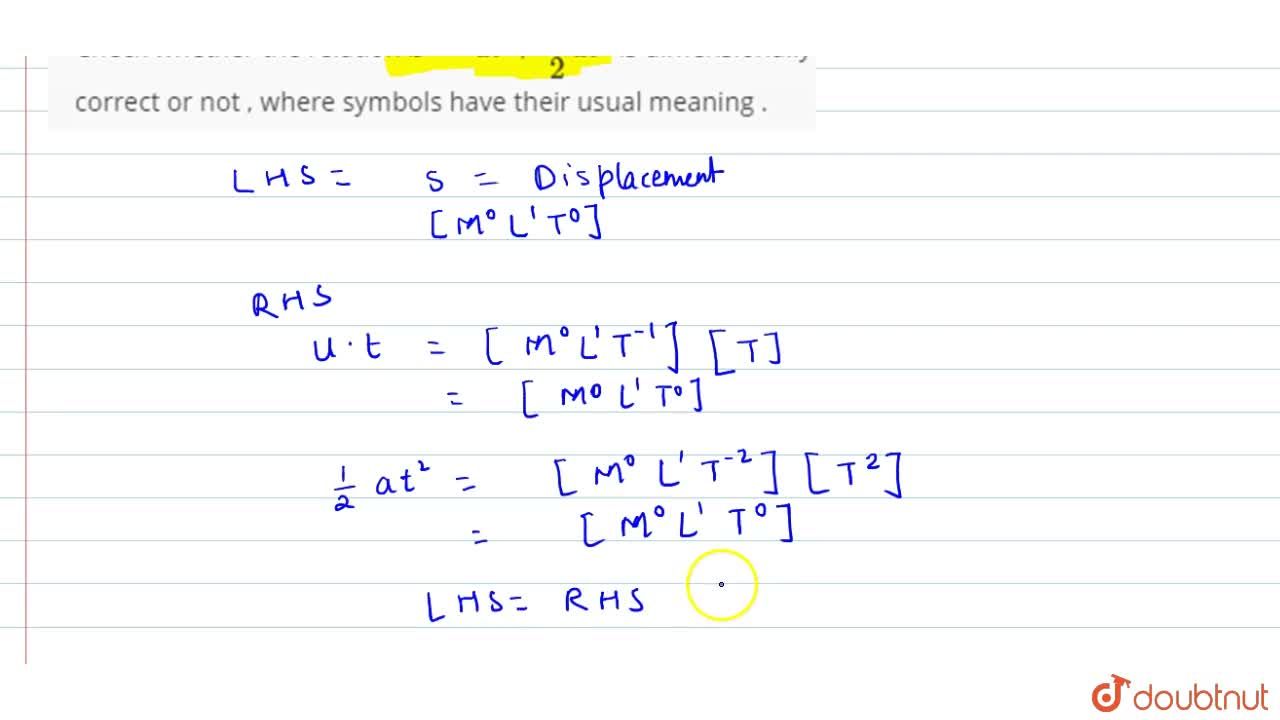 2
correct or not , where symbols have their usual meaning .
LHS = S = Displacement
[M⁰ L¹ T⁰]
RHS
u·t = [M⁰ L¹ T⁻¹] [T]
= [M⁰ L¹ T⁰]
½ at² = [M⁰ L¹ T⁻²] [T²]
= [M⁰ L¹ T⁰]
LHS = RHS
doubtnut